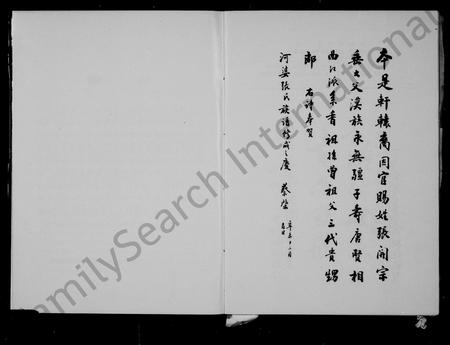 本是軒轅裔因官賜姓張開宗
垂大父漢族永無疆子壽唐賢相
西江派系香祖孫曾祖父三代貴甥
郎 右詩奉賀
河婆張氏族譜修成之慶 蔡瑩
FamilySearch International